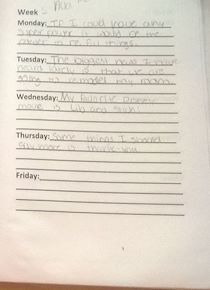 Week
Monday: If I could have any
super power it would be the
power to
Tuesday: The biggest news I have
heard lately is that we are
going to remodel my room.
Wednesday: My favorite Disney
movie is Lilo and Stitch!
Thursday: Some things I should
say more is thank you
Friday: